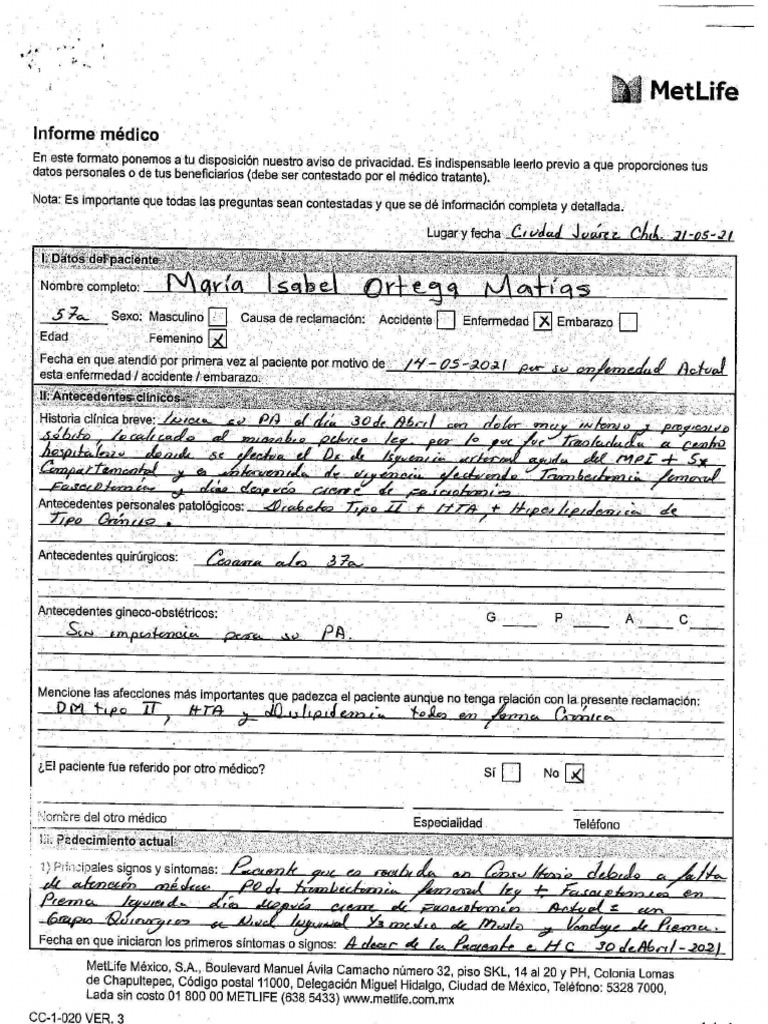 MetLife
Informe médico
En este formato ponemos a tu disposición nuestro aviso de privacidad. Es indispensable leerlo previo a que proporciones tus
datos personales o de tus beneficiarios (debe ser contestado por el médico tratante).
Nota: Es importante que todas las preguntas sean contestadas y que se dé información completa y detallada.
Lugar y fecha Ciudad Juárez Chih. 21-05-21
I. Datos del paciente
Nombre completo: María Isabel Ortega Matías
57a Sexo: Masculino Causa de reclamación: Accidente Enfermedad X Embarazo
Edad Femenino X
Fecha en que atendió por primera vez al paciente por motivo de 14-05-2021 por su enfermedad Actual
esta enfermedad / accidente / embarazo.
II. Antecedentes clínicos
Historia clínica breve: Inicia su PA al día 30 de Abril con dolor muy intenso y progresivo
súbito localizado al miembro pelvico Izq por lo que fue trasladada a centro
hospitalario donde se efectua el Dx de Isquencia arterial aguda del MPI + Sx
Compartamental y es intervenida de urgencia efectuando Trombectomia femoral
Fasciotomía y días después cierre de fasciotomia
Antecedentes personales patológicos: Diabetes Tipo II + HTA + Hiperlipidemia de
Tipo Crónico.
Antecedentes quirúrgicos: Cesarea a los 37a
Antecedentes gineco-obstétricos: G P A C
Sin importancia para su PA.
Mencione las afecciones más importantes que padezca el paciente aunque no tenga relación con la presente reclamación:
DM tipo II, HTA y Dislipidemia todos en forma Crónica
¿El paciente fue referido por otro médico? Sí No X
Nombre del otro médico Especialidad Teléfono
III. Padecimiento actual
1) Principales signos y síntomas: Paciente que es recibida en Consultorio debido a falta
de atención médica, PO de trombectomia femoral Izq + Fasciotomia en
Pierna Izquierda días después cierre de Fasciotomia Actual = un
Grapas Quirurgicos a Nivel Inguinal 1/3 medio de Muslo y Vendaje de Pierna.
Fecha en que iniciaron los primeros síntomas o signos: A decir de la Paciente e HC 30 de Abril-2021
MetLife México, S.A., Boulevard Manuel Ávila Camacho número 32, piso SKL, 14 al 20 y PH, Colonia Lomas
de Chapultepec, Código postal 11000, Delegación Miguel Hidalgo, Ciudad de México, Teléfono: 5328 7000,
Lada sin costo 01 800 00 METLIFE (638 5433) www.metlife.com.mx
CC-1-020 VER. 3